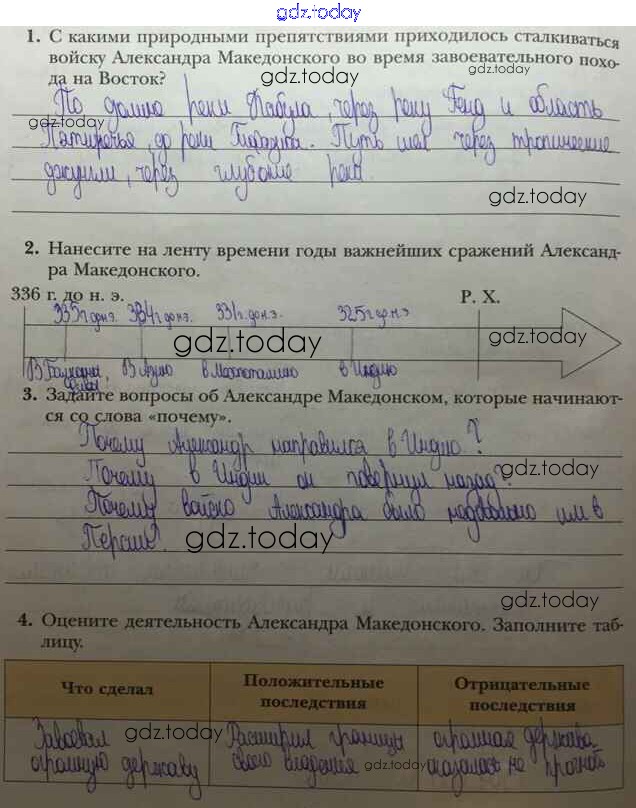 gdz.today
1. С какими природными препятствиями приходилось сталкиваться
войску Александра Македонского во время завоевательного похо-
да на Восток?
gdz.today
По долине реки Кабула, через реку Генд и область
gdz.today
Пятиречья, до реки Гифазиса. Путь шёл через тропические
джунгли, через глубокие реки
gdz.today
2. Нанесите на ленту времени годы важнейших сражений Александ-
ра Македонского.
336 г. до н. э.
Р. Х.
335г днэ. 334г днэ. 331г.днэ. 325г днэ
gdz.today
gdz.today
В Балканы, Фивы В Азию в Месопотамию в Индию
3. Задайте вопросы об Александре Македонском, которые начинают-
ся со слова «почему».
Почему Александр направился в Индию?
Почему в Индии он повернул назад?
gdz.today
Почему войско Александра было недовольно им в
Персии?
gdz.today
gdz.today
4. Оцените деятельность Александра Македонского. Заполните таб-
лицу.
Что сделал
Положительные
последствия
Отрицательные
последствия
Завоевал
огромную державу
gdz.today
Расширил границы
своего владения
gdz.today
огромная держава
оказалась не прочной